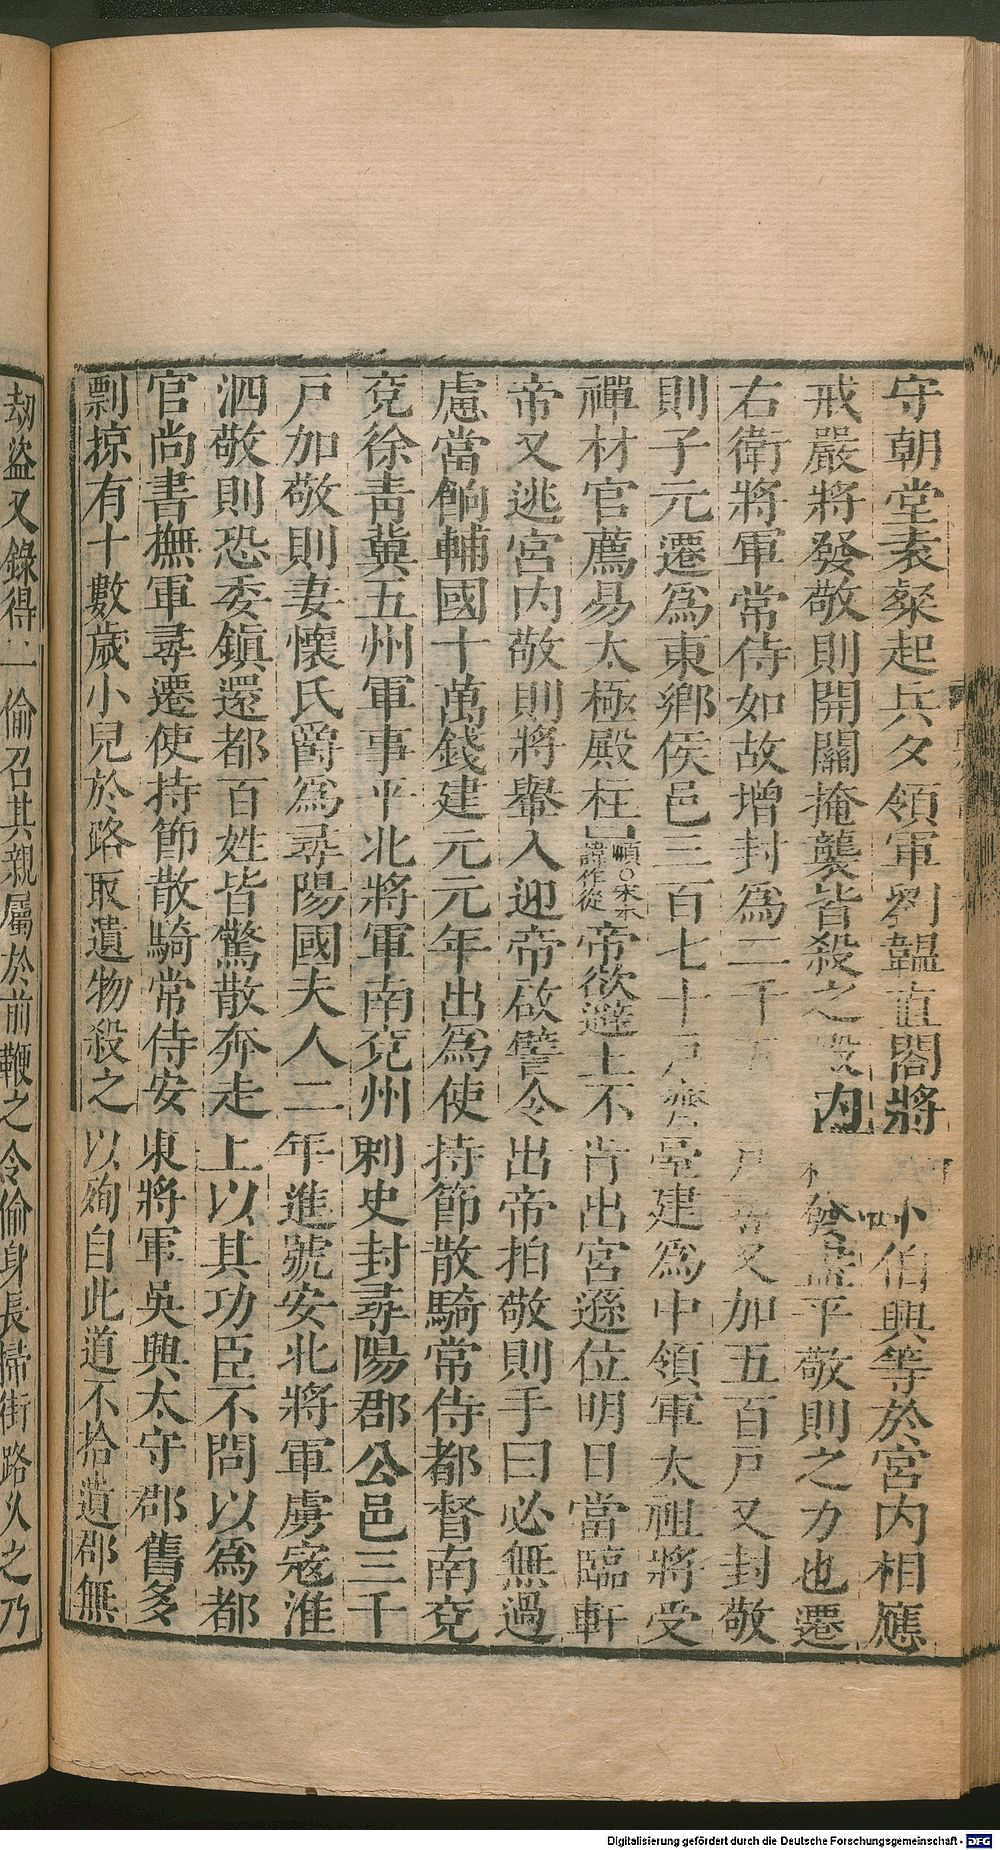 守朝堂袁粲起兵夕領軍劉韞直閤將 卜伯興等於宮内相應
戒嚴將發敬則開關掩襲皆殺之殿内 發盡平敬則之力也遷
右衛將軍常侍如故增封爲二千五 戶 又加五百戶又封敬
則子元遷爲東鄉侯邑三百七十戶齊臺建爲中領軍太祖將受
禪材官薦易太極殿柱 順○宋本諱作從 帝欲避上不肯出宮遜位明日當臨軒
帝又逃宮内敬則將轝入迎帝啟譬令出帝拍敬則手曰必無過
慮當餉輔國十萬錢建元元年出爲使持節散騎常侍都督南兗
兗徐青冀五州軍事平北將軍南兗州刺史封尋陽郡公邑三千
戶加敬則妻懷氏爵爲尋陽國夫人二年進號安北將軍虜寇淮
泗敬則恐委鎭還都百姓皆驚散奔走上以其功臣不問以爲都
官尚書撫軍尋遷使持節散騎常侍安東將軍吳興太守郡舊多
剽掠有十數歲小兒於路取遺物殺之以殉自此道不拾遺郡無
劫盜又錄得一偷召其親屬於前鞭之令偷身長掃街路久之乃
Digitalisierung gefördert durch die Deutsche Forschungsgemeinschaft - DFG